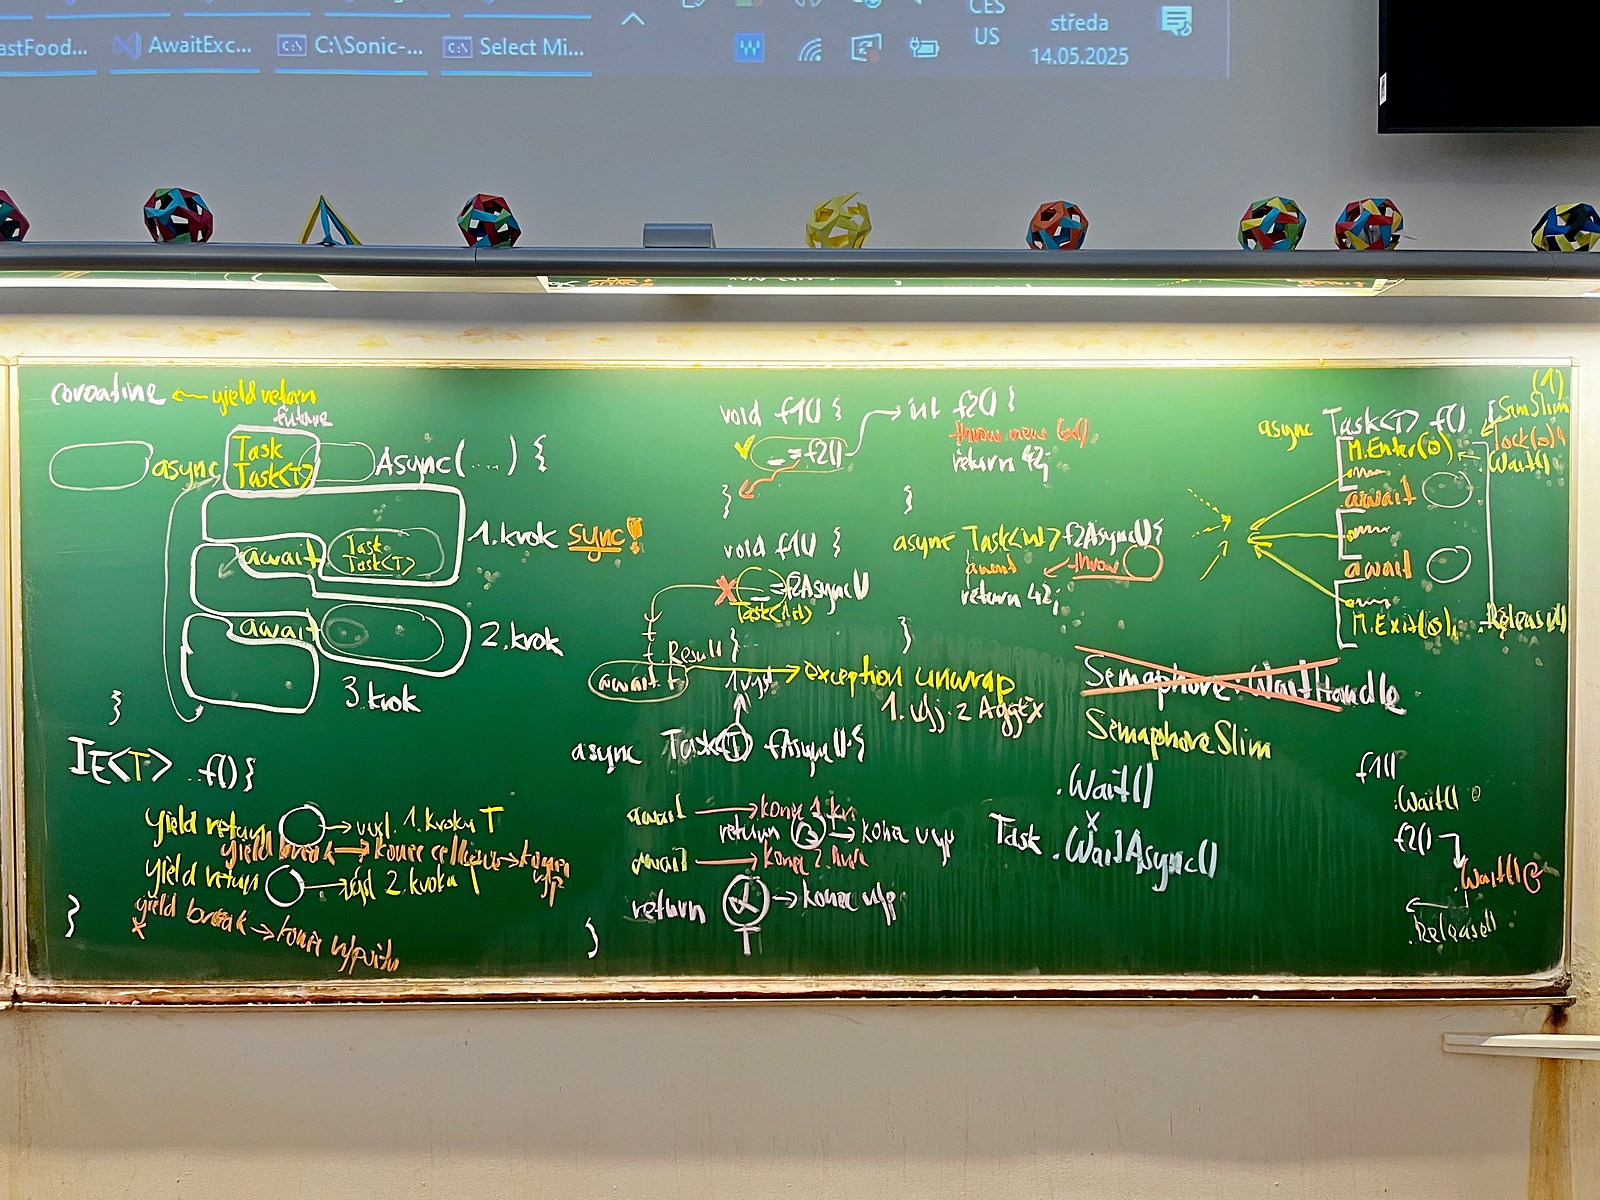 AwaitExc...
C:\Sonic-...
Select Mi...
CES
US
středa
14.05.2025
coroutine ← yield return
future
async Task
Task<T> Async(...) {
1.krok sync!
await Task
Task<T>
await
2.krok
3.krok
}
IE<T> ..f(){
yield return → výsl. 1.kroku T
yield break →
yield return → výsl 2.kroku T
yield break → konec výpočtu
}
void f1() {
_ = f2()
}
int f2() {
throw new Ex()
return 42;
}
void f1() {
_ = f2Async()
Task<int>
}
Result
await t
exception unwrap
1. výj. z AggEx
async Task<int> f2Async(){
await
throw
return 42;
}
async Task<T> fAsync(){
await → konec 1.kr.
return → konec výp
await → konec 2.kroku
return → konec výp
T
}
(1)
async Task<T> f()
M.Enter(o)
await
await
M.Exit(o)
SemSlim
lock(o){
Wait()
.Release()
Semaphore : WaitHandle
SemaphoreSlim
.Wait()
x
Task .WaitAsync()
f1()
.Wait()
f2()
.Wait()
.Release()